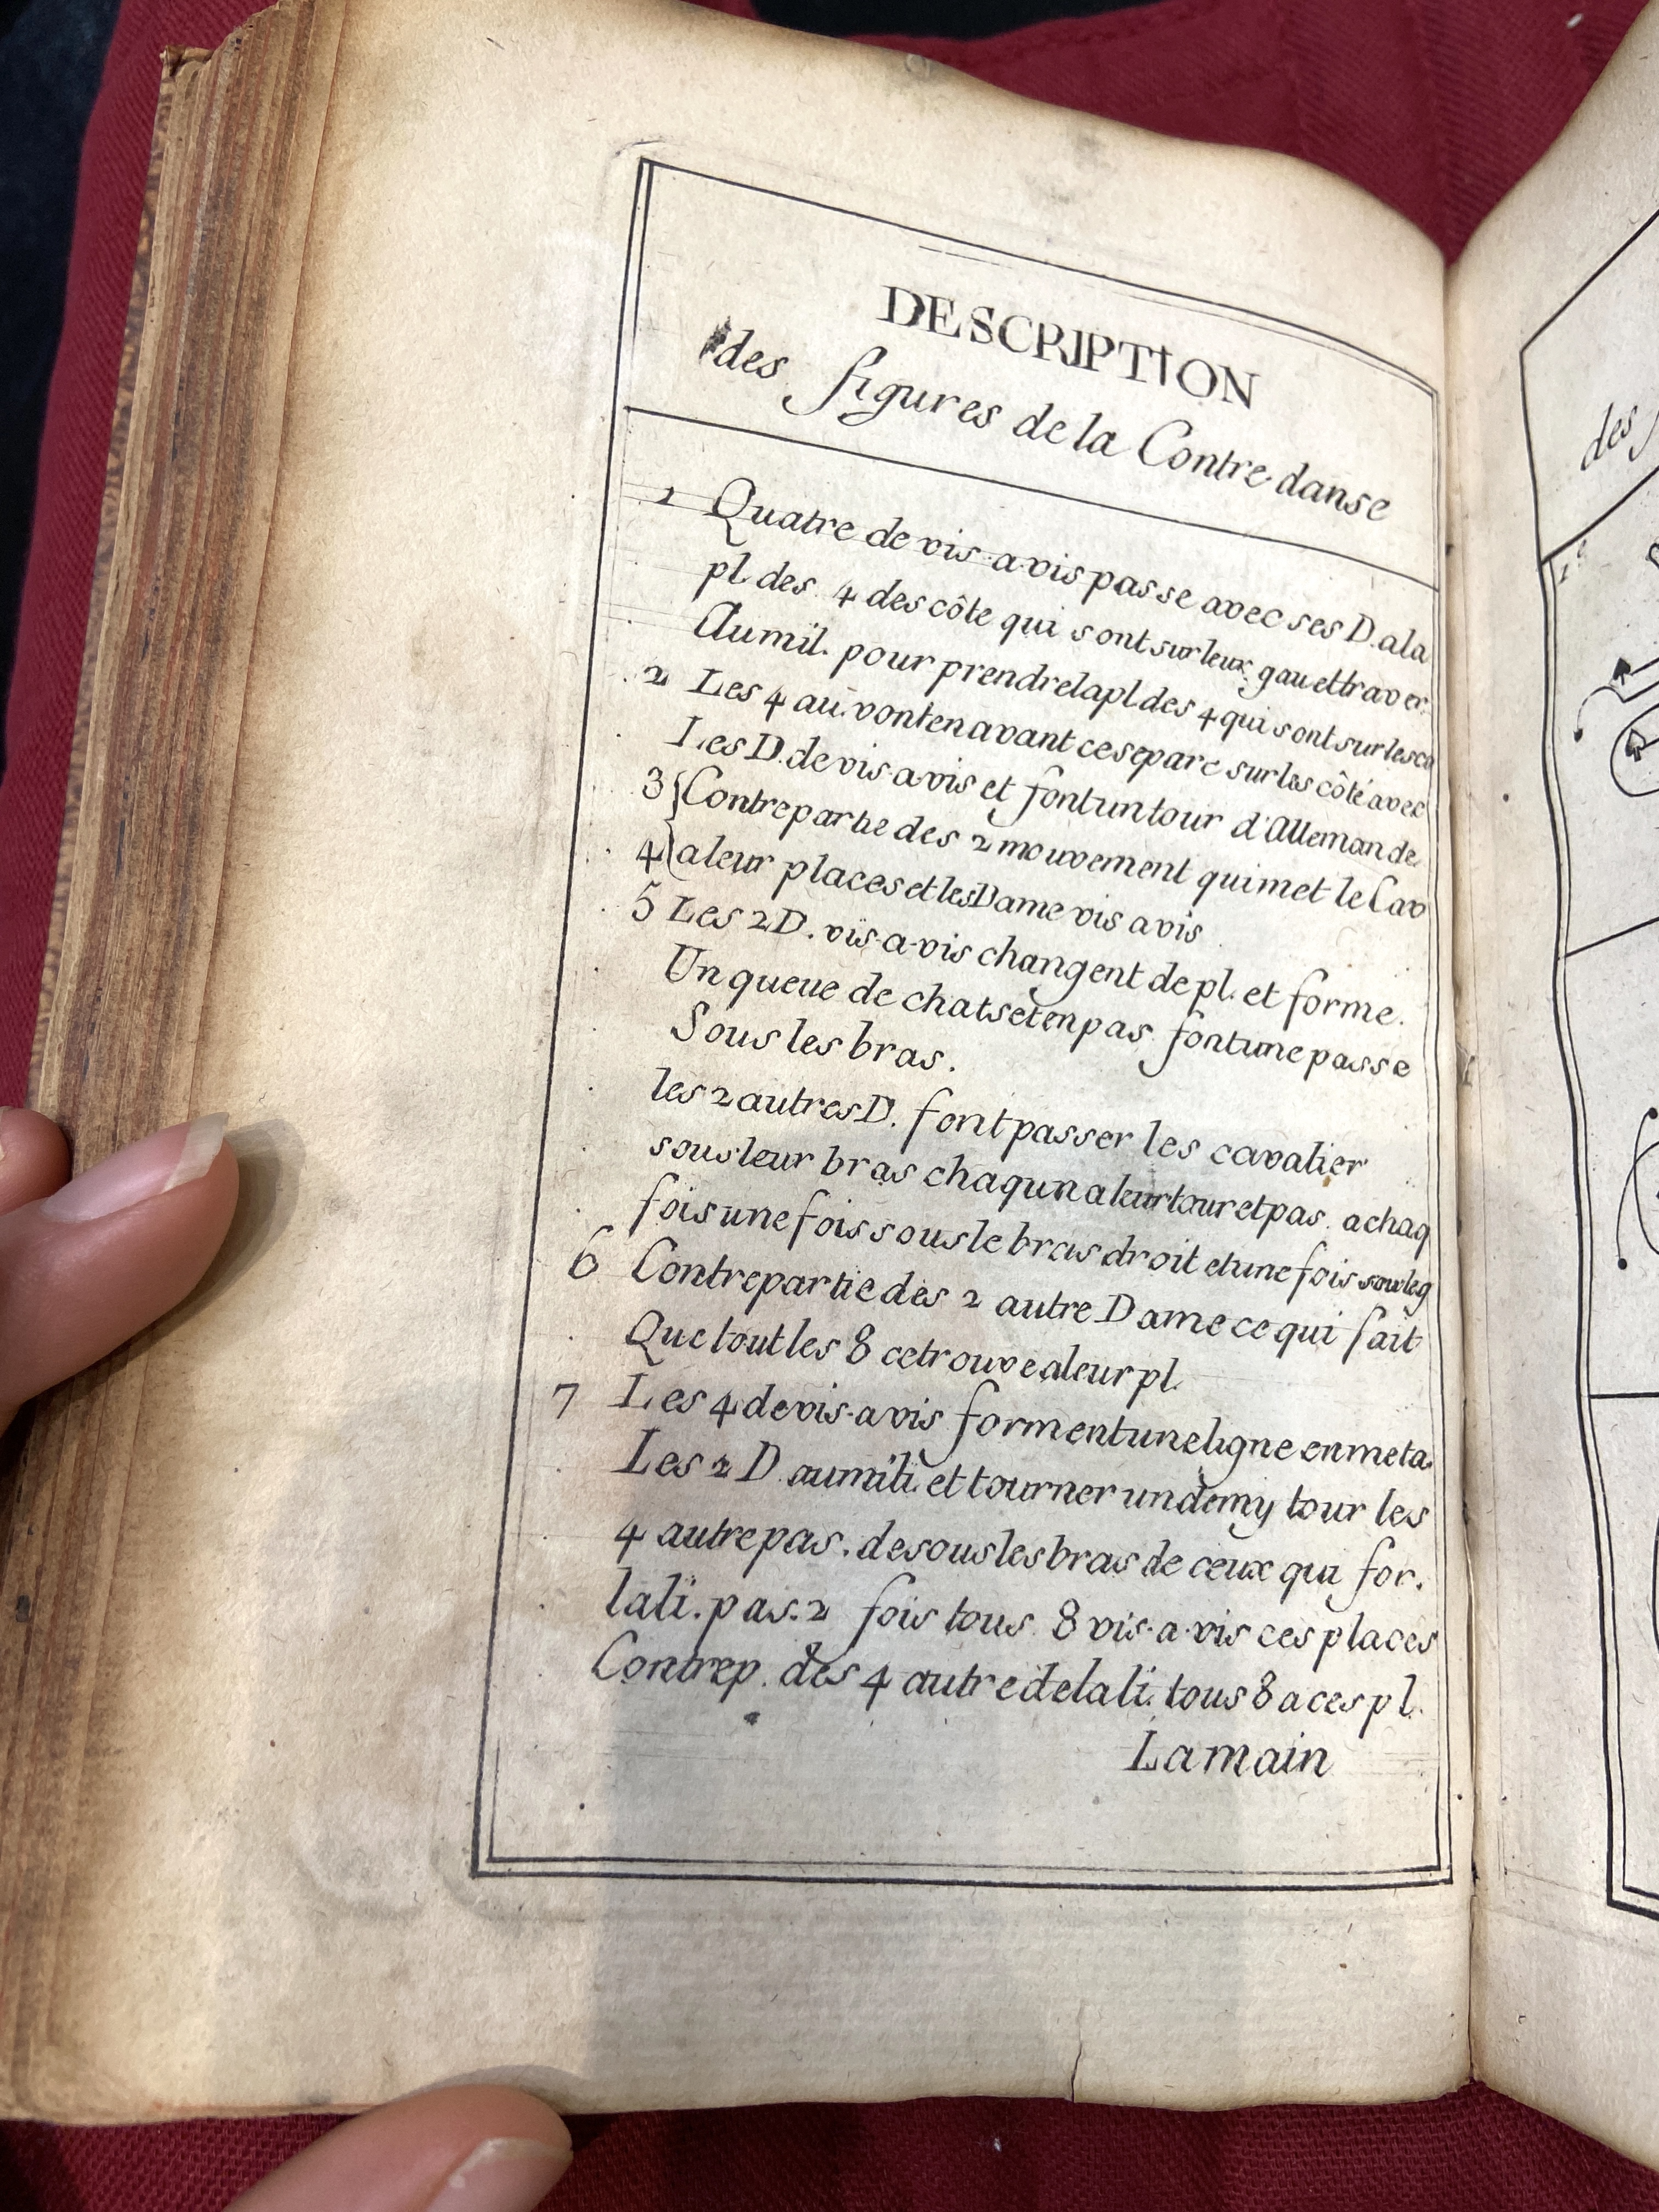 DESCRIPTION
des figures de la Contre-danse
1 Quatre de vis-a-vis passe avec ses D. a la
pl. des 4 des côte qui sont sur leux gau et traver.
Au mil. pour prendre la pl des 4 qui sont sur les co
2 Les 4 au. vont en avant ce separe sur les côté avec
Les D. de vis-a-vis et font un tour d'Allemande.
3 { Contrepartie des 2 mouvement qui met le Cav
4 { a leur places et les Dame vis a vis
5 Les 2 D. vis-a-vis changent de pl. et forme.
Un queue de chats et en pas font une passe
Sous les bras.
les 2 autres D. font passer les cavalier
sous leur bras chaqun a leur tour et pas. a chaq
fois une fois sous le bras droit et une fois sous le g
6 Contrepartie des 2 autre Dame ce qui fait
Que tout les 8 ce trouve a leur pl.
7 Les 4 de vis-a vis forment une ligne en meta.
Les 2 D. au mili. et tourner un demy tour les
4 autre pas. desous les bras de ceux qui for.
la li. pas. 2 fois tous 8 vis-a-vis ces places
Contrep. des 4 autre de la li. tous 8 a ces pl.
La main
des